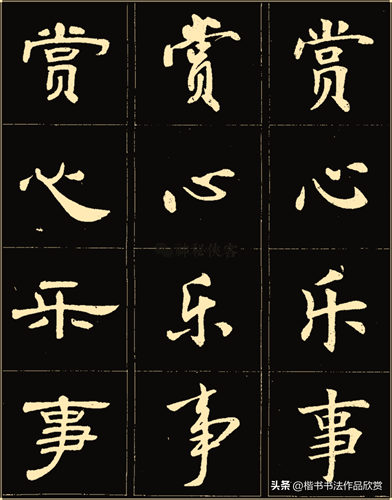 赏 赏 赏
心 心 心
乐 乐 乐
事 事 事
神秘侠客
头条 @楷书书法作品欣赏